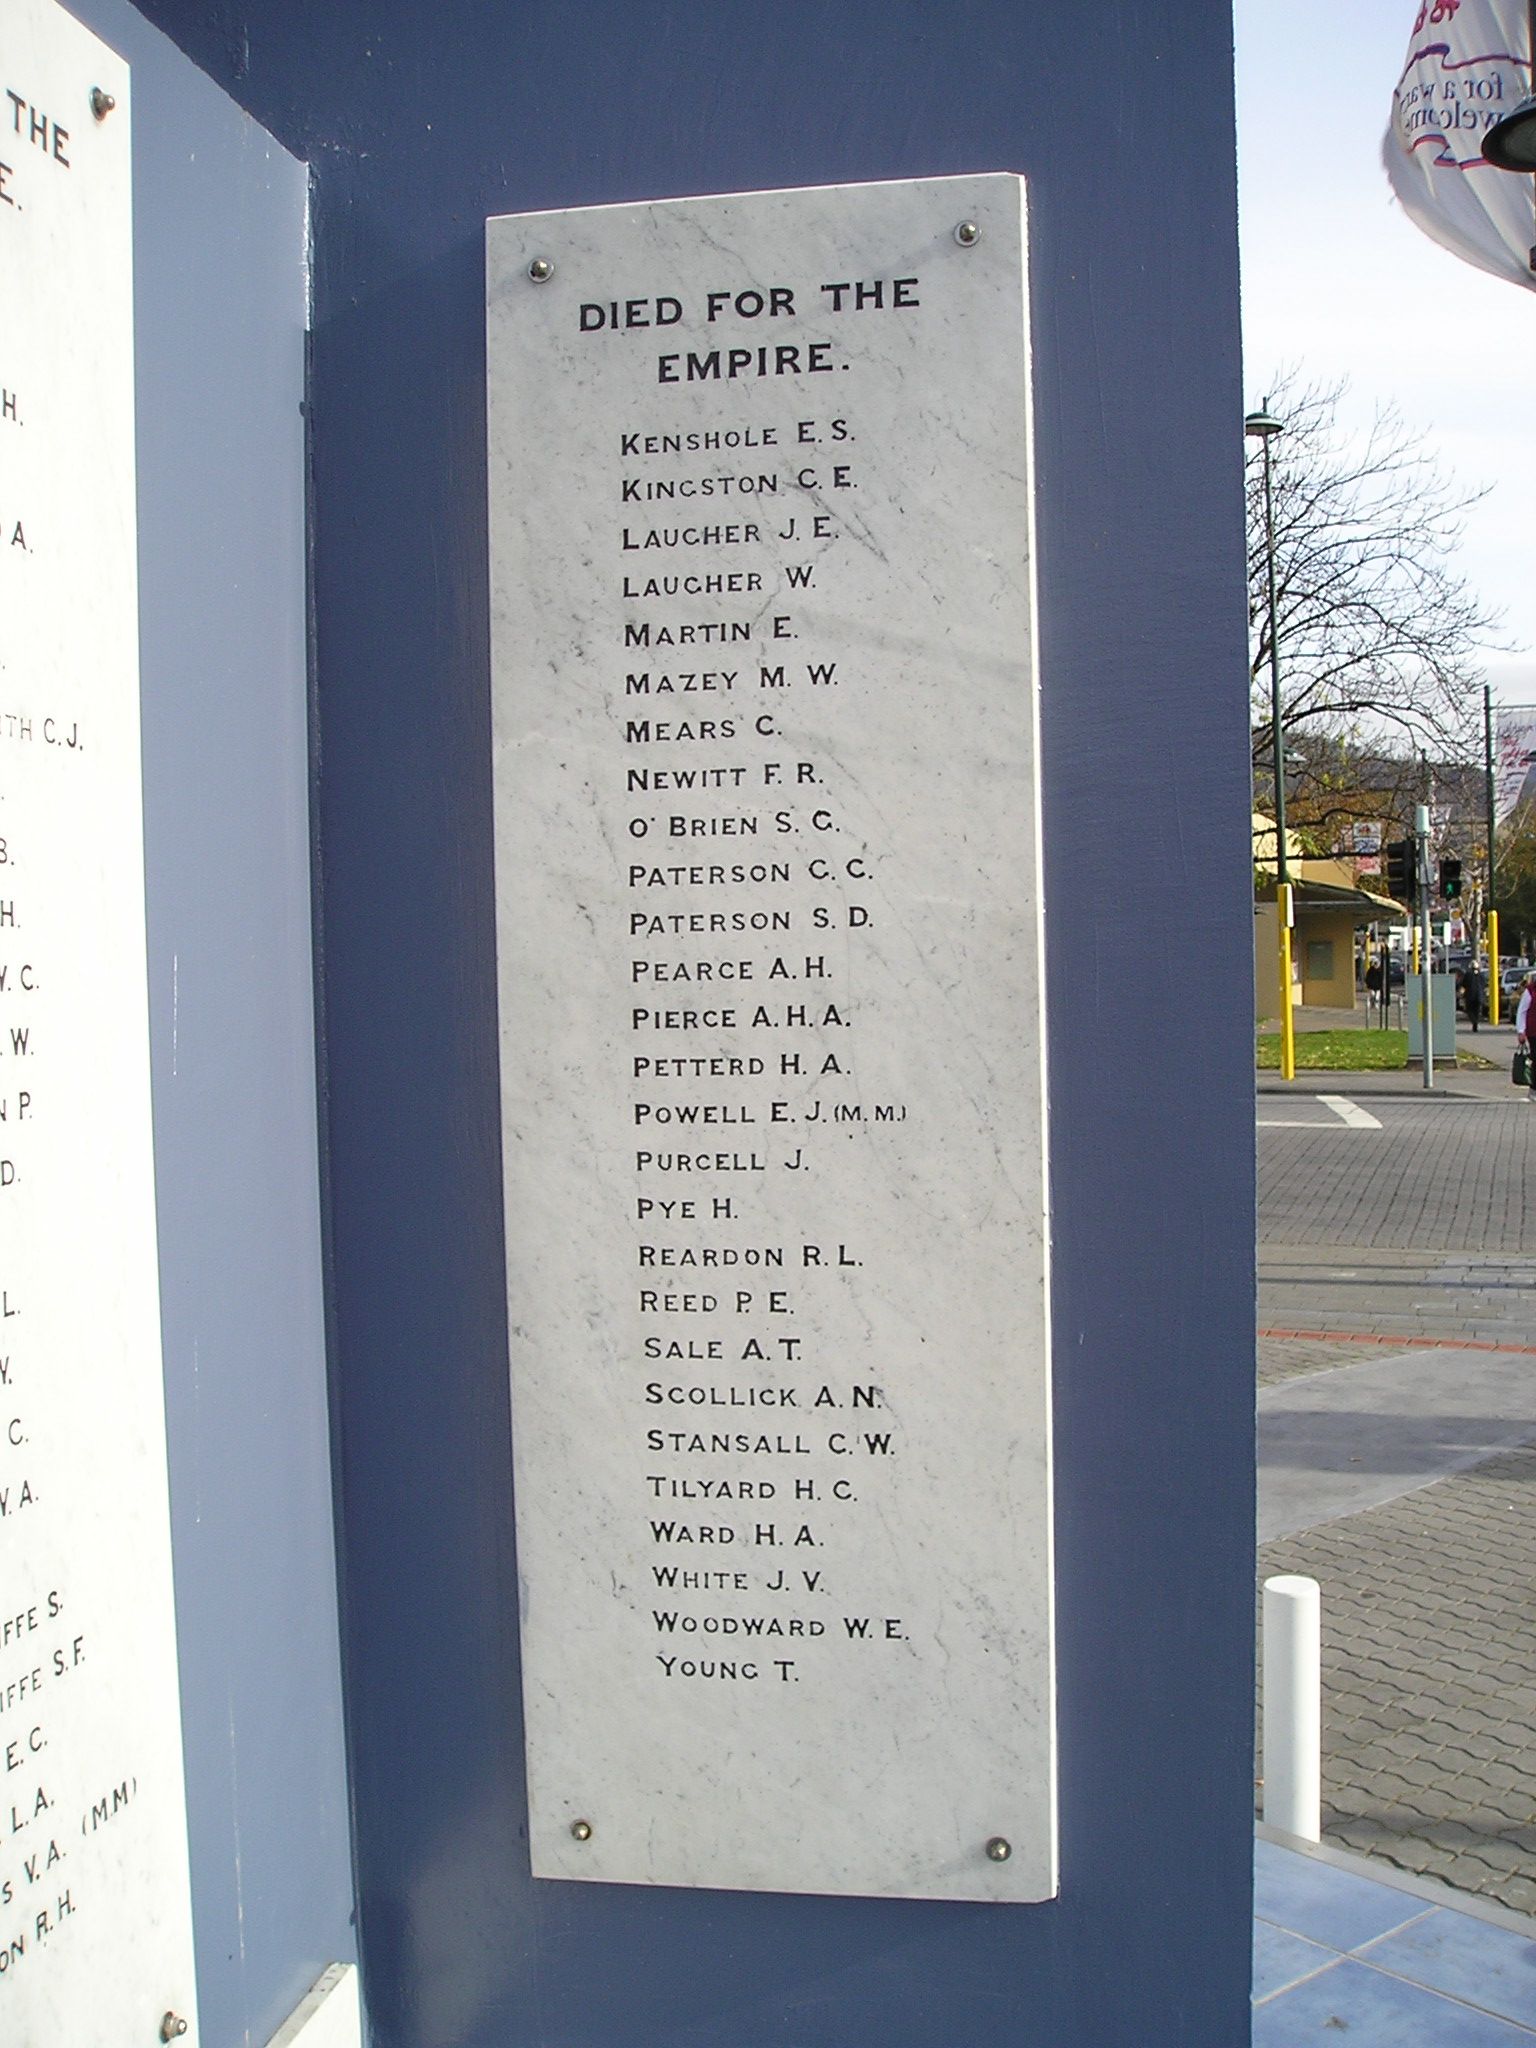 THE
E.
H.
A.
ITH C.J.
B.
H.
W. C.
W.
N P.
D.
L.
C.
V. A.
IFFE S.
IFFE S. F.
E. C.
L. A.
S V. A. (M.M)
ON R. H.
DIED FOR THE
EMPIRE.
KENSHOLE E. S.
KINGSTON C. E.
LAUGHER J. E.
LAUGHER W.
MARTIN E.
MAZEY M. W.
MEARS C.
NEWITT F. R.
O'BRIEN S. G.
PATERSON C. C.
PATERSON S. D.
PEARCE A. H.
PIERCE A. H. A.
PETTERD H. A.
POWELL E. J. (M. M.)
PURCELL J.
PYE H.
REARDON R. L.
REED P. E.
SALE A. T.
SCOLLICK A. N.
STANSALL C. W.
TILYARD H. C.
WARD H. A.
WHITE J. V.
WOODWARD W. E.
YOUNG T.
for a war
welcome